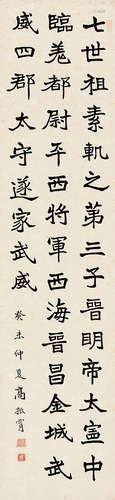 七世祖素軌之第三子晉明帝太寧中
臨羗都尉平西將軍西海晉昌金城武
威四郡太守遂家武威
癸未仲夏高振霄